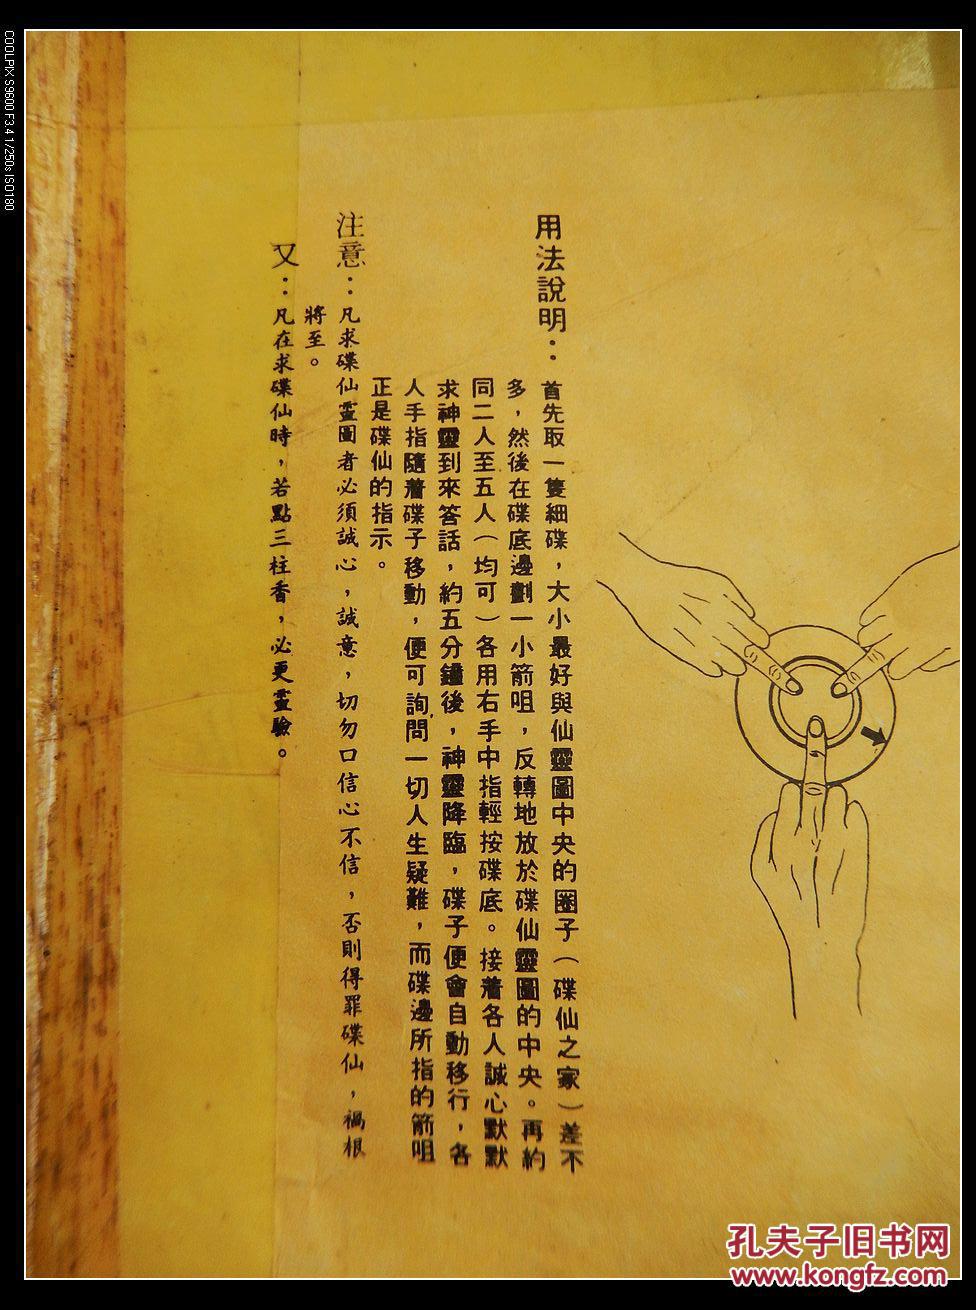 用法說明：首先取一隻細碟，大小最好與仙靈圖中央的圈子（碟仙之家）差不
多，然後在碟底邊劃一小箭咀，反轉地放於碟仙靈圖的中央。再約
同二人至五人（均可）各用右手中指輕按碟底。接着各人誠心默默
求神靈到來答話，約五分鐘後，神靈降臨，碟子便會自動移行，各
人手指隨着碟子移動，便可詢問一切人生疑難，而碟邊所指的箭咀
正是碟仙的指示。
注意：凡求碟仙靈圖者必須誠心，誠意，切勿口信心不信，否則得罪碟仙，禍根
將至。
又：凡在求碟仙時，若點三柱香，必更靈驗。
COOLPIX S9600 F3.4 1/250s ISO180
孔夫子旧书网
www.kongfz.com